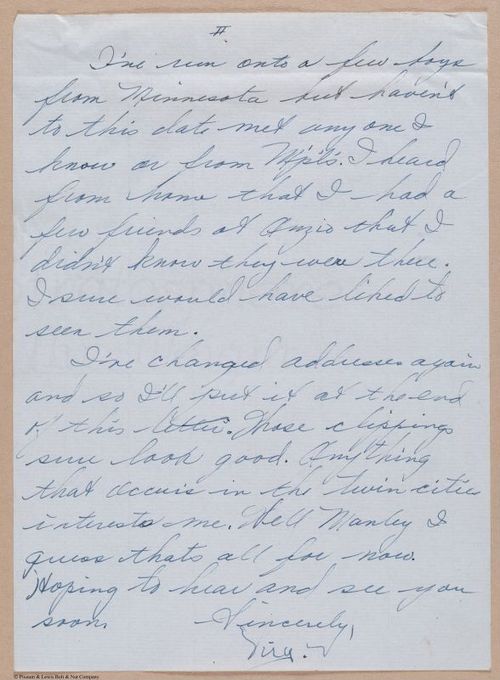 II
I've run onto a few boys
from Minnesota but haven't
to this date met anyone I
know or from Mpls. I heard
from home that I had a
few friends at Anzio that I
didn't know they were there.
I sure would have liked to
seen them.
I've changed addresses again
and so I'll put it at the end
of this letter. Those clippings
sure look good. Anything
that occurs in the twin cities
interests me. Well Manley I
guess thats all for now.
Hoping to hear and see you
soon.
Sincerely,
© Pioneers & Lewis Bolt & Nut Company